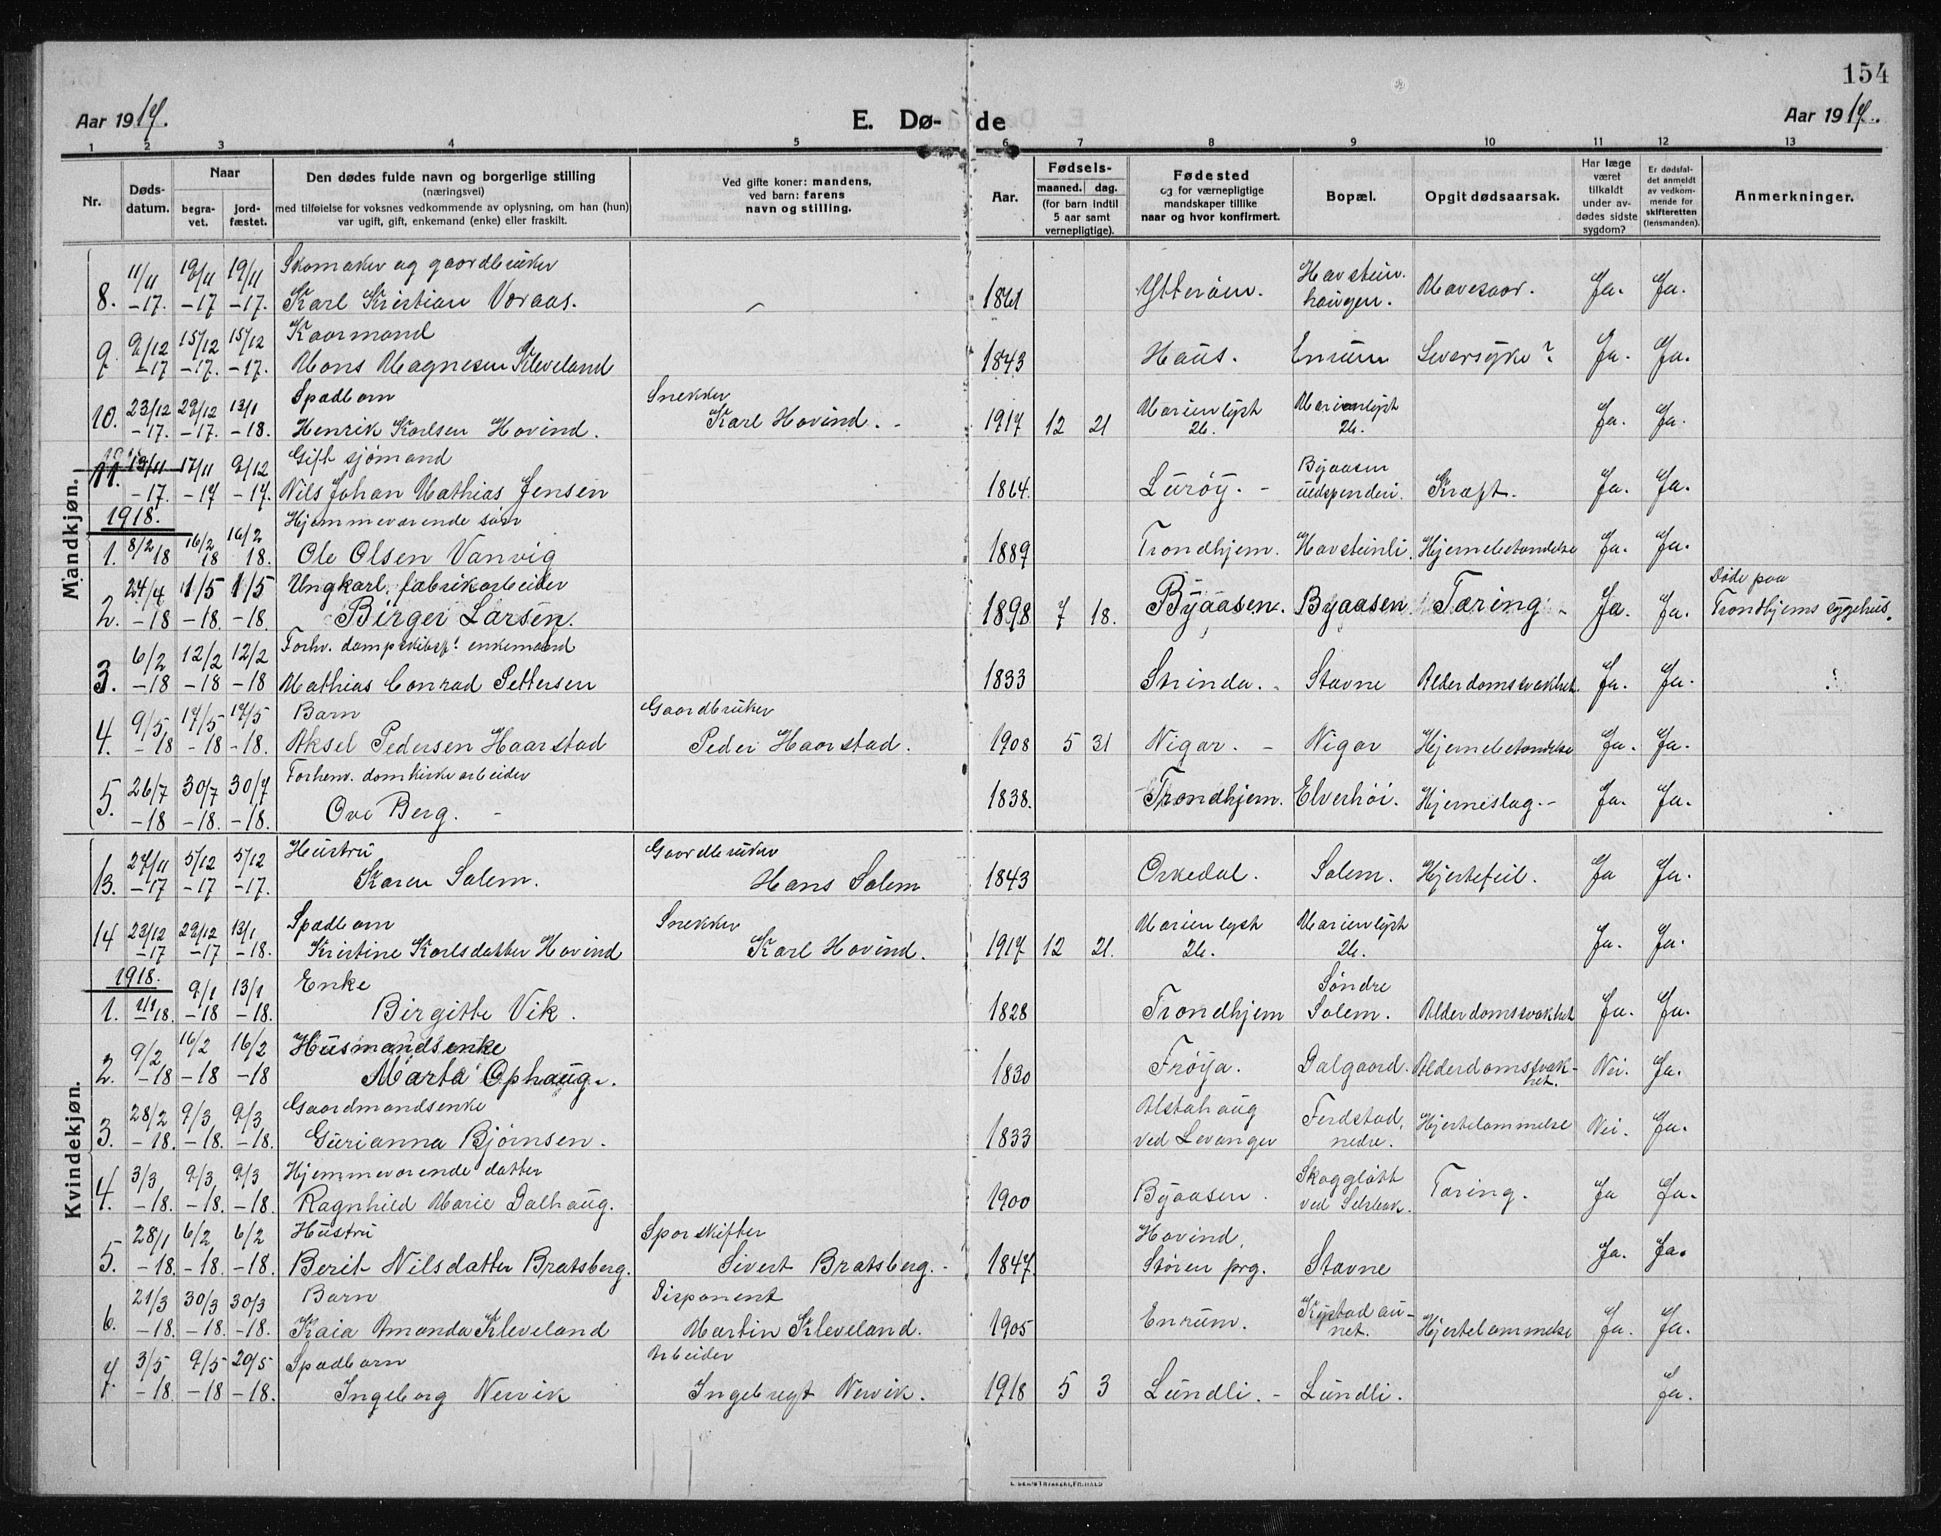 154
Aar 1917. E. Dø- de Aar 1917.
1 2 3 4 5 6 7 8 9 10 11 12 13
Nr. Døds-datum. Naar begra-vet. jord-fæstet. Den dødes fulde navn og borgerlige stilling (næringsvei) med tilføielse for voksnes vedkommende av oplysning, om han (hun) var ugift, gift, enkemand (enke) eller fraskilt. Ved gifte koner: mandens, ved barn: farens navn og stilling. Aar. Fødsels- maaned. dag. (for barn indtil 5 aar samt vernepligtige). Fødested og for værnepligtige mandskaper tillike naar og hvor konfirmert. Bopæl. Opgit dødsaarsak. Har læge været tilkaldt under av-dødes sidste sygdom? Er dødsfal-det anmeldt av vedkom-mende for skifteretten (lensmanden). Anmerkninger.
Mandkjøn.
Skomaker og gaardbruker
8. 11/11 -17. 19/11 -17 19/11 -17. Karl Kristian Voraas. 1861 Ytterøen. Havstein haugen. Mavesaar. Ja. Ja.
Kaarmand
9. 9/12 -17 15/12 -17. 15/12 -17. Mons Magnesen Kleveland 1843 Haus. Enrum Leversyke? Ja. Ja.
Spædbarn Snekker
10. 23/12 -17. 29/12 -17. 13/1 -18. Henrik Karlsen Hovind. Karl Hovind. 1917 12 21 Marienlyst 26. Marienlyst 26. Ja. Ja.
Gift sjømand
11. 13/11 -17. 17/11 -17 9/12 -17. Nils Johan Mathias Jensen 1864. Lurøy. Byaasen Kræft. Ja. Ja.
1918. Hjemmeværende søn
1. 8/2 18 16/2 18 16/2 18. Ole Olsen Vanvig 1889 Trondhjem. Havsteinli. Hjernebetændelse Ja. Ja.
Ungkarl, fabrikarbeider Døde paa
2. 24/4 -18 1/5 -18. 1/5 -18. Birger Larsen. 1898 7 18. Byaasen. Byaasen. Tæring Ja. Ja. Trondhjems sygehus.
Forhv. dampskibsf. enkemand
3. 6/2 -18 12/2 -18 12/2 -18 Mathias Conrad Pettersen 1833 Strinda. Stavne Alderdomssvakhet. Ja. Ja.
Barn Gaardbruker
4. 9/5 -18 17/5 -18 17/5 -18. Aksel Pedersen Haarstad Peder Haarstad. 1908 5 31 Nigar. Nigar Hjernebetændelse Ja. Ja.
Forhenv. domkirkearbeider
5. 26/7 -18 30/7 -18. 30/7 -18. Ove Berg. 1838. Trondhjem. Elverhøi. Hjerneslag. Ja. Ja.
Kvindekjøn.
Hustru Gaardbruker
13. 27/11 -17 5/12 -17 5/12 -17. Karen Salem. Hans Salem 1843 Orkedal. Salem. Hjertefeil. Ja Ja.
Spædbarn Snekker
14 23/12 -17 29/12 -17 13/1 -18. Kristine Karlsdatter Hovind Karl Hovind. 1917 12 21. Marienlyst 26. Marienlyst 26. Ja. Ja.
1918. Enke
1. 1/1 18. 9/1 -18 13/1 -18. Birgitte Vik. 1828 Trondhjem Søndre Salem. Alderdomssvakhet Ja. Ja.
Husmandsenke
2. 9/2 -18 16/2 -18 16/2 -18 Marta Ophaug. 1830 Frøya. Dalgaard. Alderdomssvak-het. Nei. Ja.
Gaardmandsenke
3. 28/2 -18. 9/3 -18. 9/3 -18. Gurianna Bjørnsen. 1833 Alstahaug ved Levanger Ferdstad, nedre. Hjertelammelse Nei. Ja.
Hjemmeværende datter
4. 3/3 -18. 9/3 -18. 9/3 -18. Ragnhild Marie Dalhaug. 1900 Byaasen. Skoggløtt ved Selsbak. Tæring. Ja Ja.
Hustru Sporskifter
5. 28/1 -18. 6/2 -18. 6/2 -18. Berit Nilsdatter Bratsberg. Sivert Bratsberg. 1847. Hovind, Støren prg. Stavne Ja. Ja.
Barn Disponent
6. 21/3 -18. 30/3 -18. 30/3 -18. Kaia Amanda Kleveland Martin Kleveland. 1905 Enrum. Kystadau-net. Hjertelammelse Ja. Ja.
Spædbarn Arbeider
7. 3/5 -18. 9/5 -18 20/5 -18. Ingeborg Nervik Ingebregt Nervik. 1918 5 3 Lundli. Lundli. Ja.